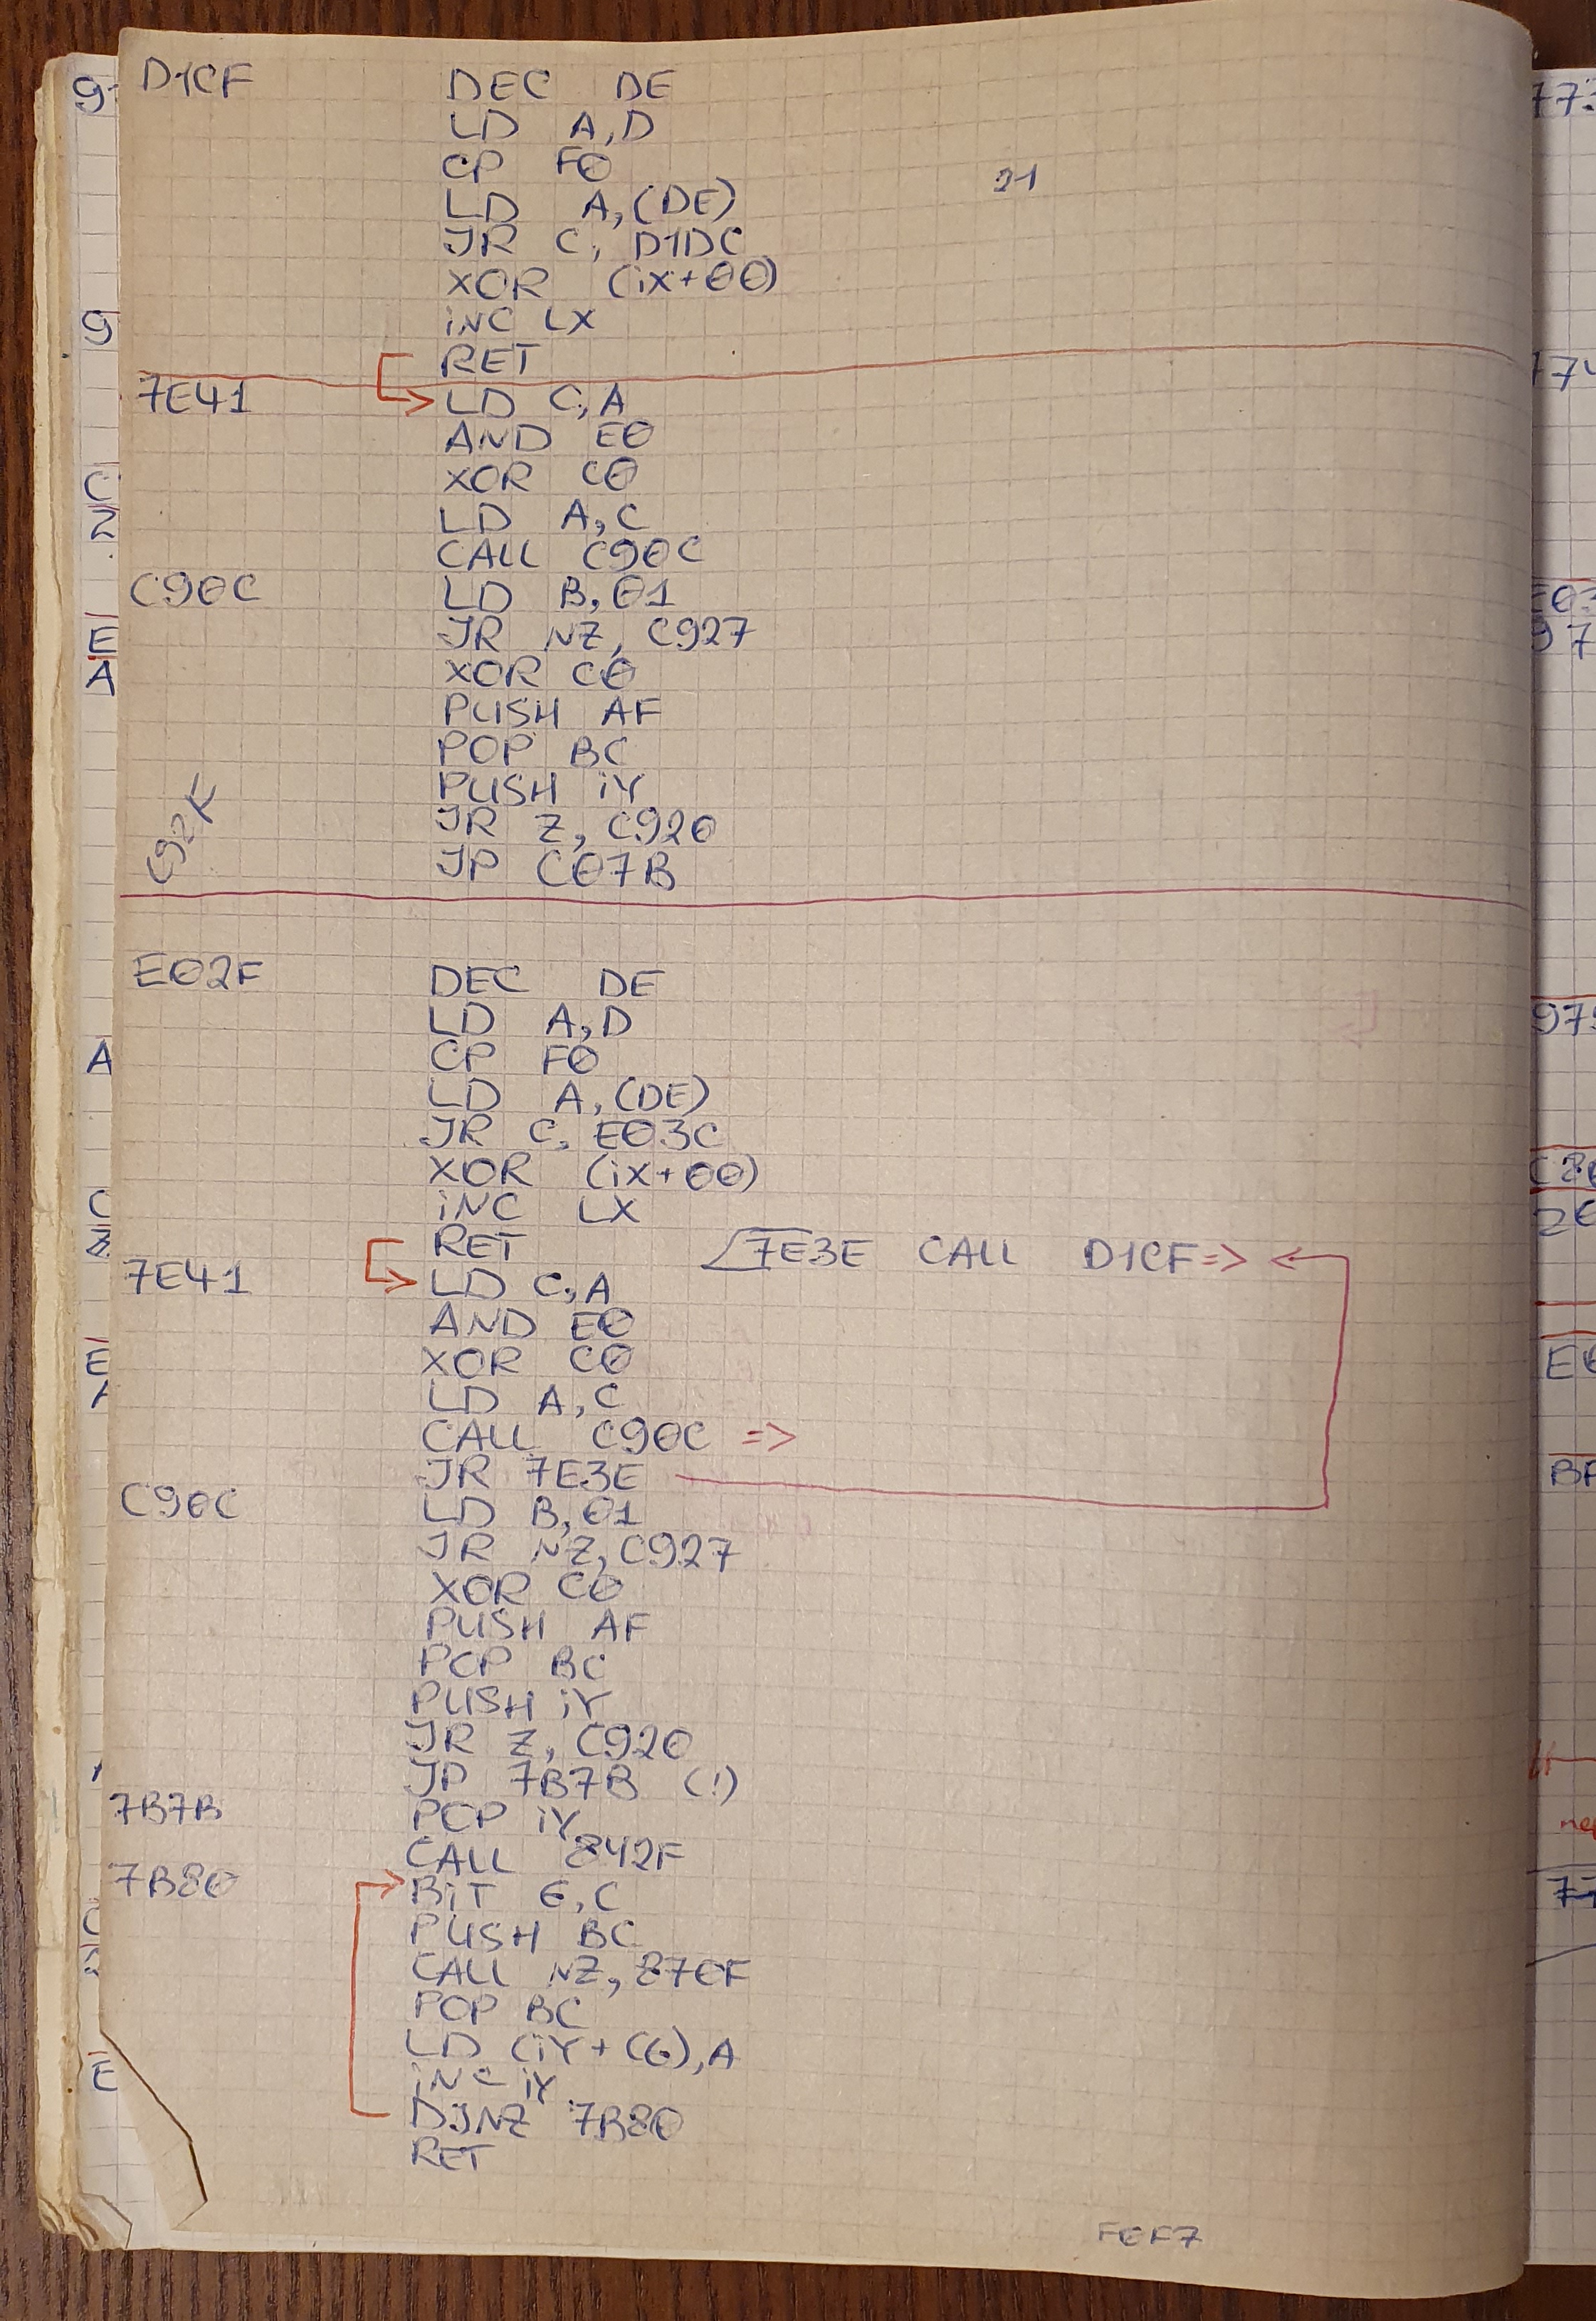 D1CF DEC DE
LD A,D
CP F0
21
LD A,(DE)
JR C, D1DC
XOR (iX+00)
iNC LX
RET
7E41 LD C,A
AND E0
XOR C0
LD A,C
CALL C90C
C90C LD B,01
JR NZ, C927
XOR C0
PUSH AF
POP BC
PUSH iY
JR Z, C920
JP C07B
E02F DEC DE
LD A,D
CP F0
LD A,(DE)
JR C, E03C
XOR (iX+00)
iNC LX
RET 7E3E CALL D1CF => <
7E41 LD C,A
AND E0
XOR C0
LD A,C
CALL C90C =>
JR 7E3E
C90C LD B,01
JR NZ, C927
XOR C0
PUSH AF
POP BC
PUSH iY
JR Z, C920
JP 7B7B (!)
7B7B POP iY
CALL 842F
7B80 BiT 6,C
PUSH BC
CALL NZ, 870F
POP BC
LD (iY+00),A
iNC iY
DJNZ 7B80
RET
F0F7